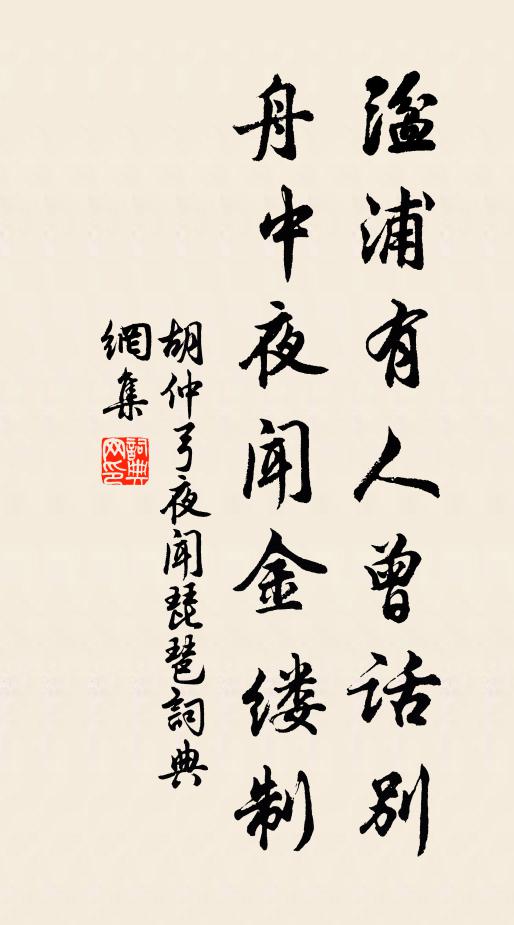 湓浦有人曾话别
舟中夜闻金缕制
胡仲弓夜闻琵琶詞典
網集
詞典
网印